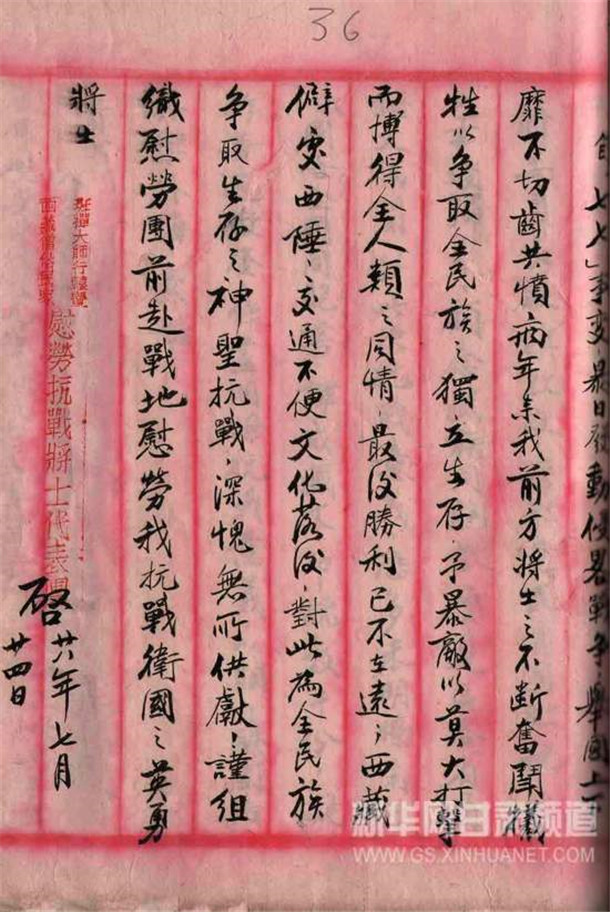 36
自七七事变，暴日發動侵畧戰争，舉國上下
靡不切齒共憤，两年来我前方將士之不断奮鬪犧
牲，以争取全民族之獨立生存，予暴敵以莫大打擊，
而博得全人類之同情，最後勝利已不在遠，西藏
僻處西陲，交通不便，文化落後，對此為全民族
争取生存之神聖抗戰，深愧無所供獻，謹組
織慰勞團前赴戰地慰勞我抗戰衛國之英勇
將士
班禪大師行轅暨
西藏僧俗民衆
慰勞抗戰將士代表團
啓 廿八年七月
廿四日
新华网甘肃频道
WWW.GS.XINHUANET.COM